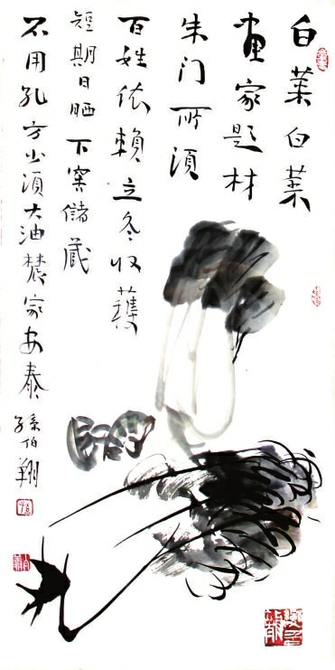 白菜白菜
画家题材
朱门所须
百姓依赖立冬收获
短期日晒下窑储藏
不用孔方少须大油农家安泰
孙伯翔